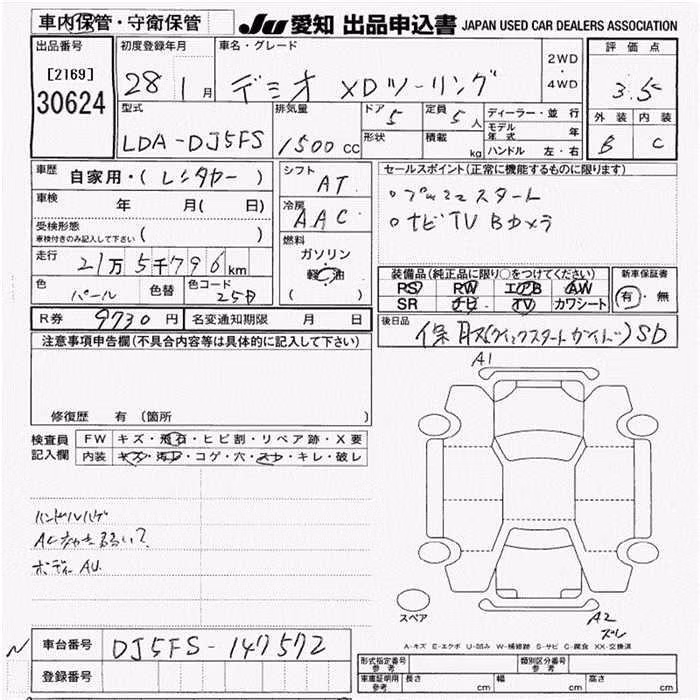 車内保管・守衛保管
JU 愛知 出品申込書 JAPAN USED CAR DEALERS ASSOCIATION
出品番号
[2169]
30624
初度登録年月
28 1月
車名・グレード
デミオ XDツーリング
2WD
・
4WD
評価点
3.5
外装 内装
B C
型式
LDA-DJ5FS
排気量
1500cc
ドア 5
形状
定員 5人
積載 kg
ディーラー・並行
モデル年式 年
ハンドル 左・右
車歴
自家用・(レンタカー)
車検 年 月( 日)
受検形態
車検付きのみ記入して下さい ( )
走行 21万5千796km
色 パール 色替 色コード 25D
シフト AT
冷房 AAC
燃料
ガソリン
軽油
( )
セールスポイント(正常に機能するものに限ります)
スタート
ナビTV Bカメラ
装備品(純正品に限り○をつけてください)
PS PW エアB AW
SR ナビ TV カワシート
新車保証書
有・無
R券 9730円 名変通知期限 月 日
後日品
保 取(クイックスタートガイド)SD
注意事項申告欄(不具合内容等は具体的に記入して下さい)
修復歴 有(箇所 )
検査員記入欄
FW キズ・飛石・ヒビ割・リペア跡・X要
内装 キズ・汚れ・コゲ・穴・スレ・キレ・破レ
ハンドルハゲ
AC 弱い?
ボディーAU
A1
A2
ズレ
スペア
A-キズ E-エクボ U-凹み W-補修跡 S-サビ C-腐食 XX-交換済
車台番号 DJ5FS-147572
登録番号
形式指定番号 参考
類別区分番号 参考
車庫証明用 参考 長さ cm 幅 cm 高さ cm